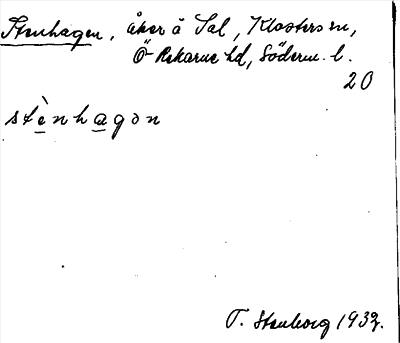 Stenhagen, åker å Sal, Klosters sn,
Ö-Rekarne hd, Söderm. l.
20
stènhagon
T. Stenborg 1932.